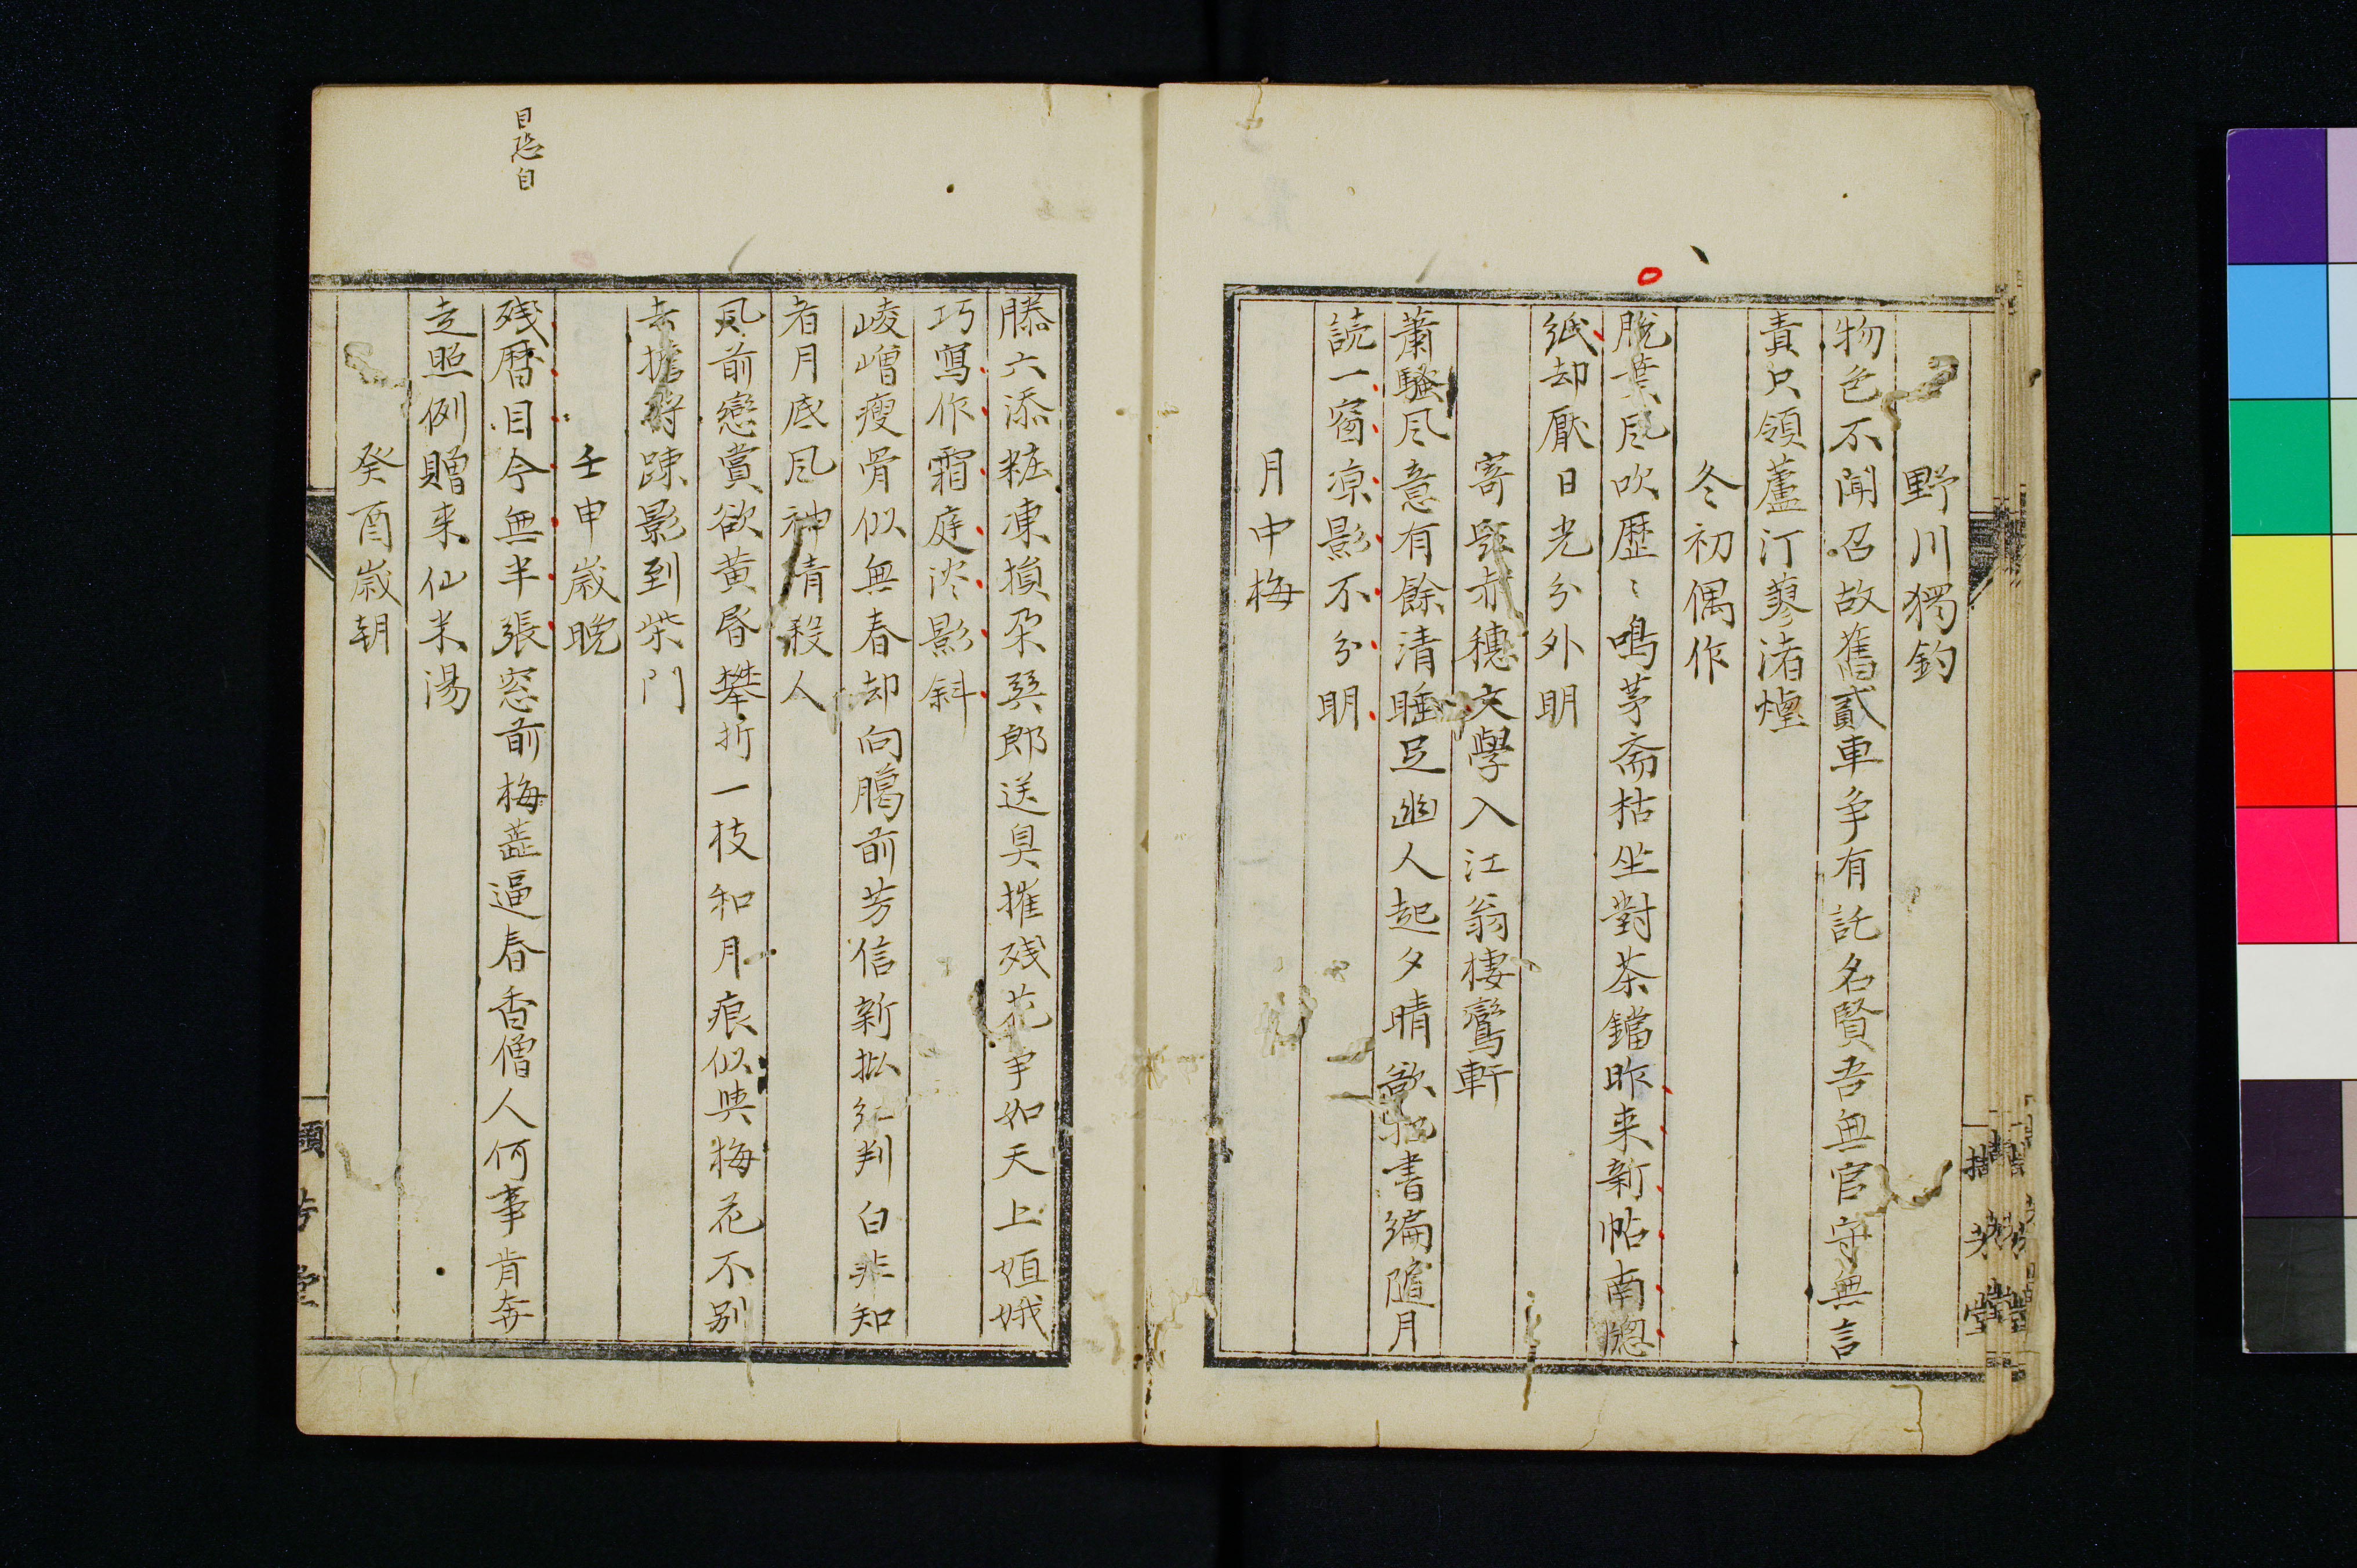 野川獨釣
物色不聞召故舊貳車争有託名賢吾無官守無言
責只領蘆汀蓼渚煙
冬初偶作
脱葉風吹歴〻鳴茅斎枯坐對茶鐺昨来新帖南窓
紙却厭日光分外明
寄題赤穗文學入江翁棲鸞軒
蕭騷風意有餘清睡足幽人起夕晴欲把書編随月
読一窗凉影不分明
月中梅
滕六添粧凍損朶巽郎送臭摧残花争如天上姮娥
巧寫作霜庭淡影斜
崚嶒瘦骨似無春却向臈前芳信新批紅判白非知
者月底風神清殺人
風前戀賞欲黄昏攀折一枝和月痕似與梅花不別
去擔將踈影到柴門
壬申歳晩
残暦目今無半張窓前梅蕋逼春香僧人何事肯奔
走照例贈来仙米湯
癸酉歳朝
目恐自
頡芳堂